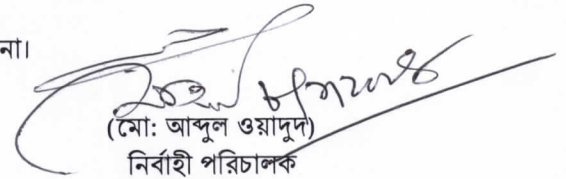 না।
(মো: আব্দুল ওয়াদুদ)
নির্বাহী পরিচালক